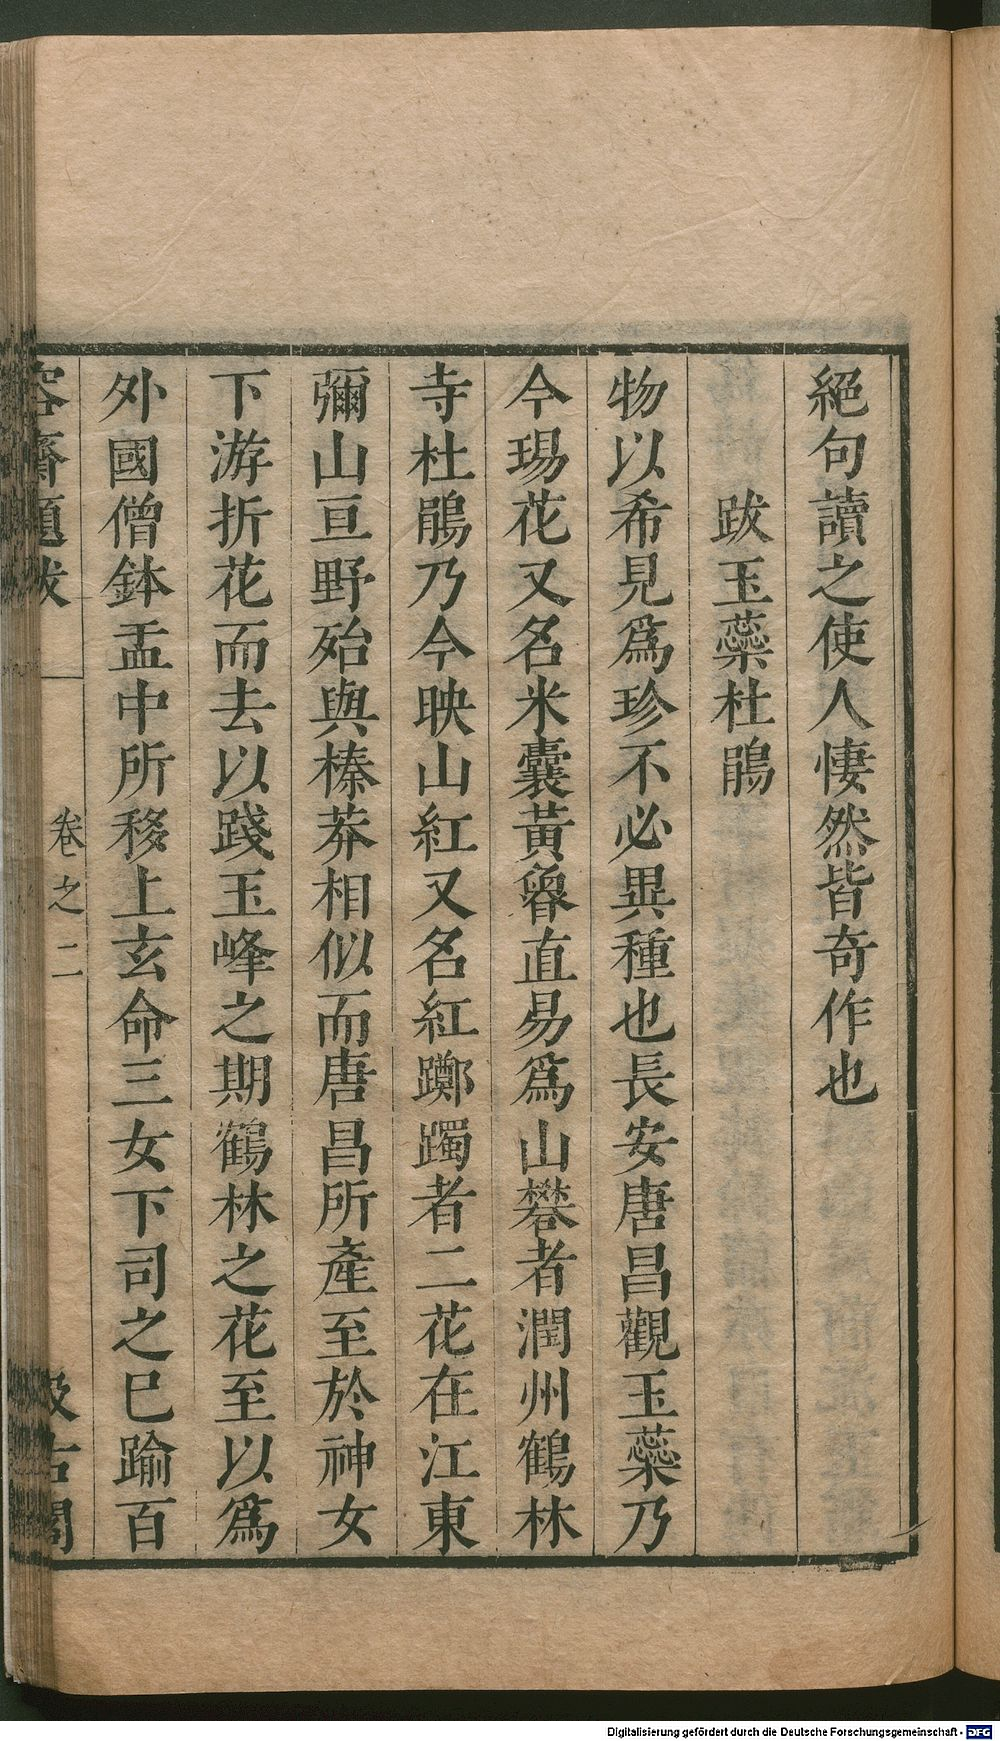 絕句讀之使人悽然皆奇作也
跋玉蘂杜鵑
物以希見爲珍不必異種也長安唐昌觀玉蘂乃
今瑒花又名米囊黃魯直易爲山礬者潤州鶴林
寺杜鵑乃今映山紅又名紅躑躅者二花在江東
彌山亘野殆與榛莽相似而唐昌所產至於神女
下游折花而去以踐玉峰之期鶴林之花至以爲
外國僧鉢盂中所移上玄命三女下司之巳踰百
容齋題跋 卷之二 汲古閣
Digitalisierung gefördert durch die Deutsche Forschungsgemeinschaft - DFG